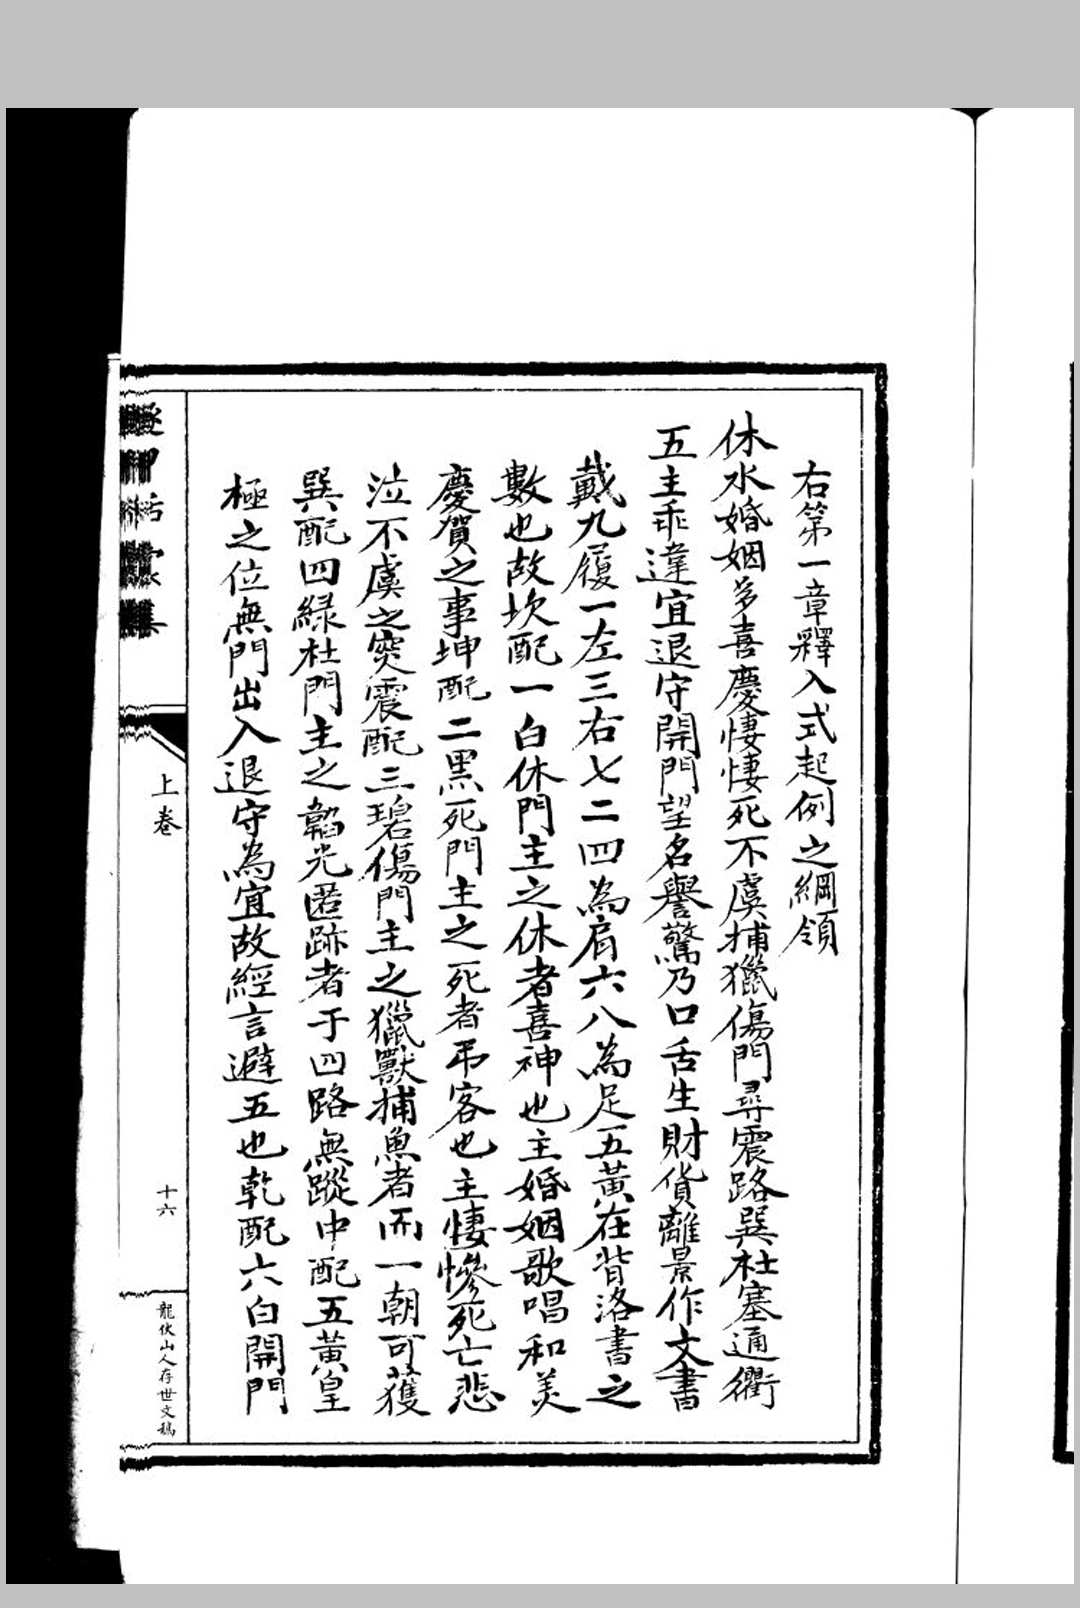 右第一章釋入式起例之綱領
休水婚姻多喜慶悽悽死不虞捕獵傷門尋震路巽杜塞通衢
五主乖違宜退守開門望名譽驚乃口舌生財貨離景作文書
戴九履一左三右七二四為肩六八為足五黃在背洛書之
數也故坎配一白休門主之休者喜神也主婚姻歌唱和美
慶賀之事坤配二黑死門主之死者弔客也主悽慘死亡悲
泣不虞之突震配三碧傷門主之獵獸捕魚者而一朝可獲
巽配四緑杜門主之韜光匿跡者于四路無蹤中配五黃皇
極之位無門出入退守為宜故經言避五也乾配六白開門
上卷
十六
龍伏山人存世文稿